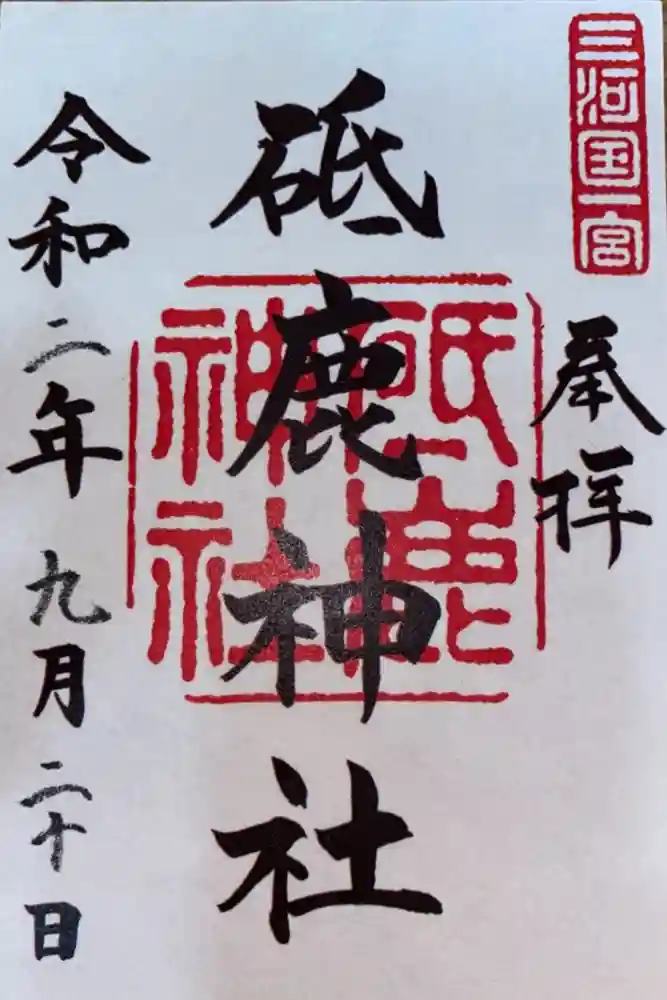 三河国一宮
奉拝
砥鹿神社
砥鹿
神社
令和二年九月二十日